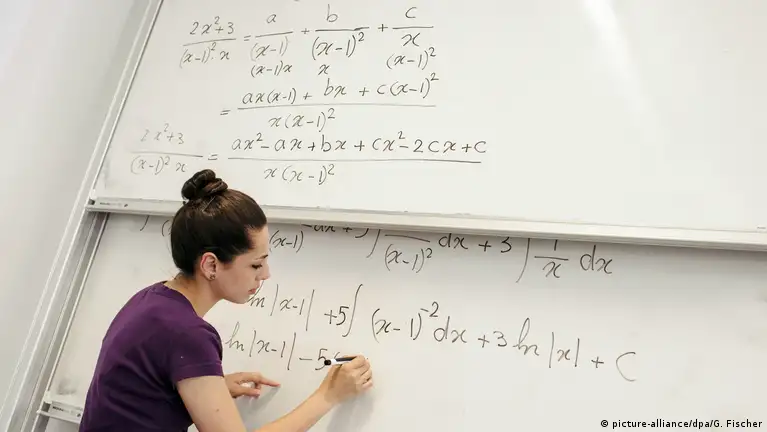 (2x²+3)/((x-1)²x) = a/(x-1) + b/(x-1)² + c/x
(x-1)x x (x-1)²
= (ax(x-1) + bx + c(x-1)²)/(x(x-1)²)
(2x²+3)/((x-1)²x) = (ax²-ax+bx+cx²-2cx+c)/(x(x-1)²)
(x-1) dx + 5∫ 1/(x-1)² dx + 3∫ 1/x dx
ln|x-1| + 5∫(x-1)⁻²dx + 3 ln|x| + C
ln|x-1| - 5
© picture-alliance/dpa/G. Fischer